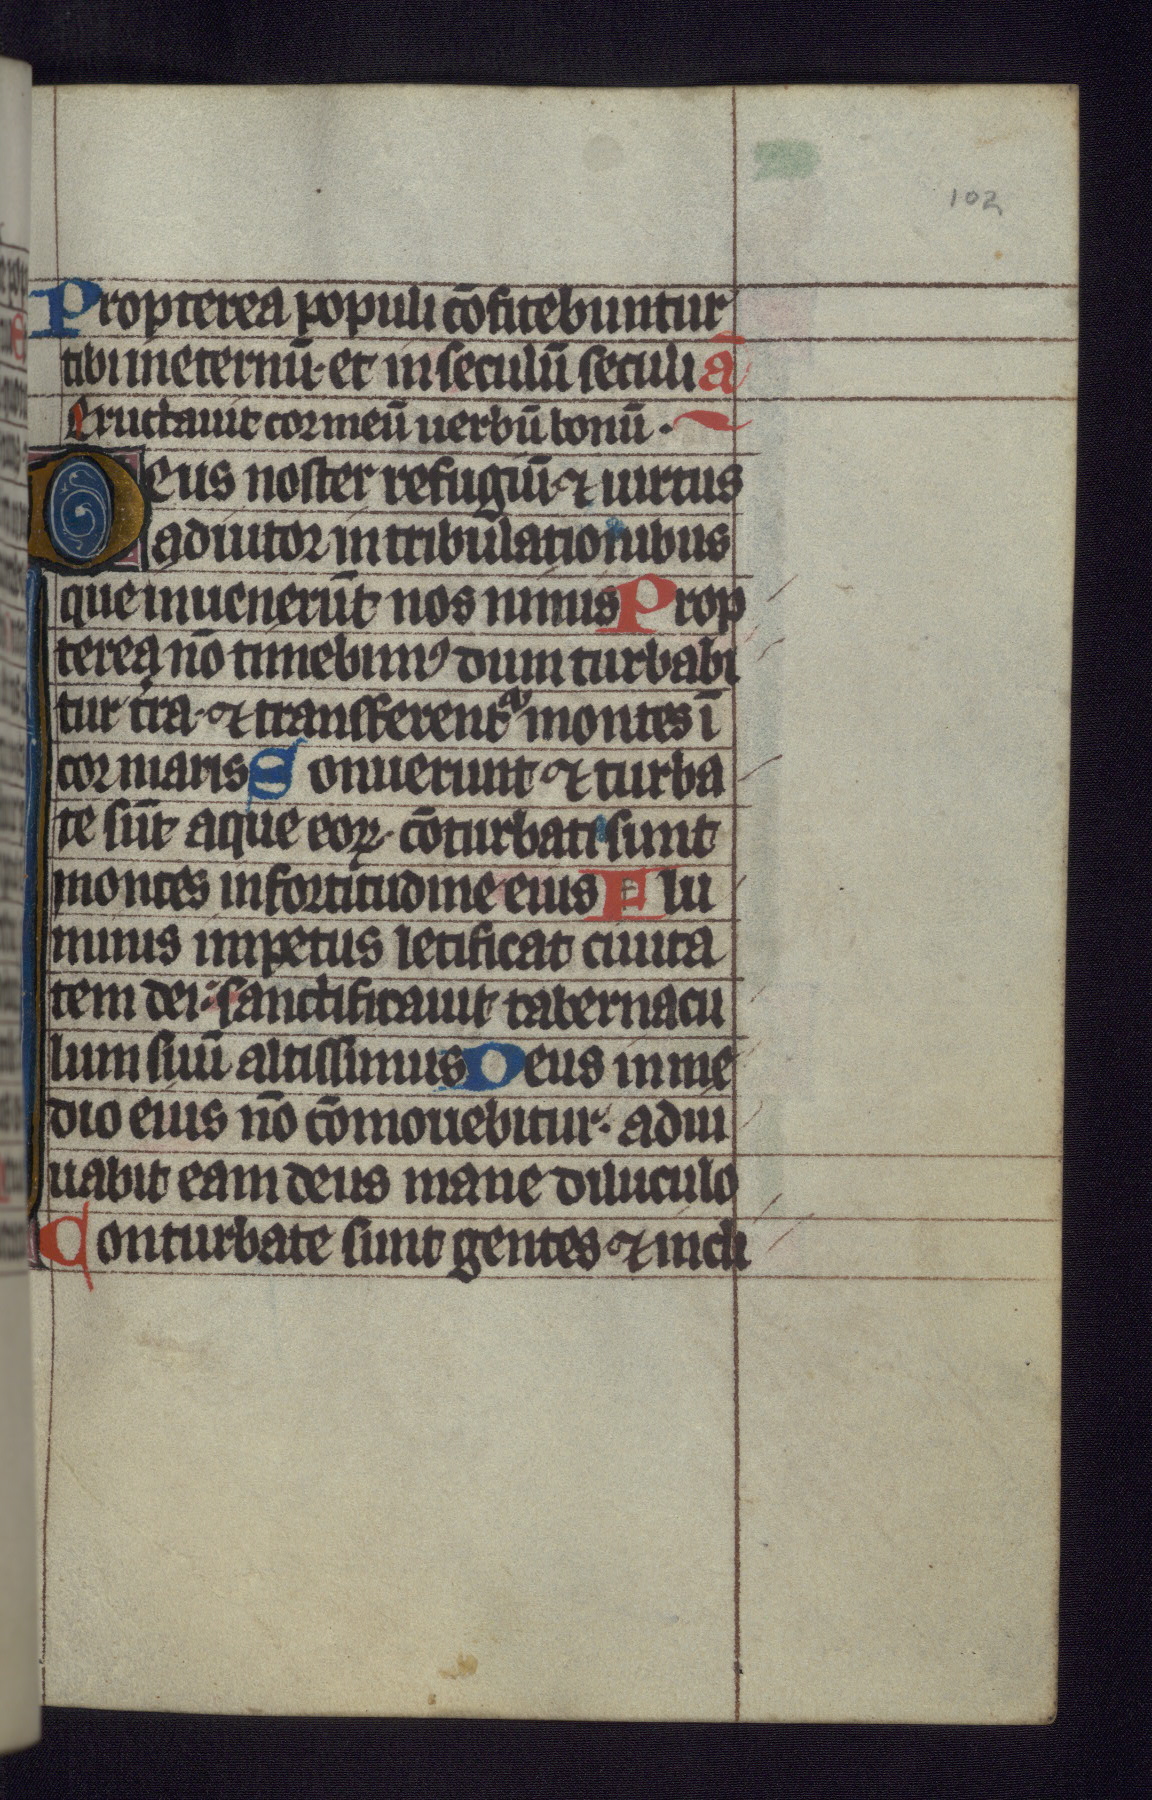 102
Propterea populi cōfitebuntur
tibi in eternū· et in seculū seculi ā
Eructauit cor meū uerbū bonū·
Deus noster refugiū· ⁊ uirtus
adiutor in tribulationibus
que inuenerūt nos nimis Prop
terea nō timebimꝰ dum turbabi
tur t̄ra· ⁊ transferentᷣ montes ī
cor maris Sonuerunt ⁊ turba
te sūt aque eoꝝ· cōturbati sunt
montes in fortitudine eius Flu
minis impetus letificat ciuita
tem dei· sanctificauit tabernacu
lum suū altissimus Deus in me
dio eius nō cōmouebitur· adiu
uabit eam deus mane diluculo
Conturbate sunt gentes ⁊ incli